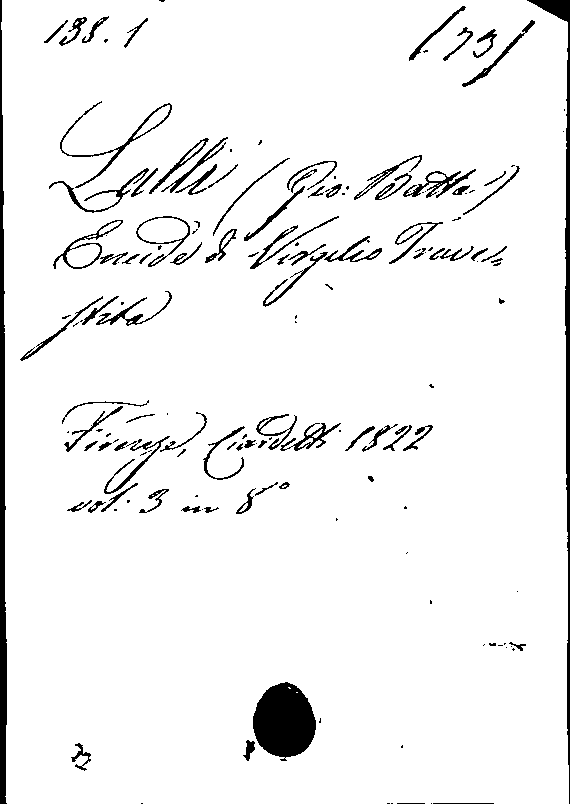 138.1 (73)
Lalli (Gio: Batta)
Eneide di Virgilio Trave=
stita
Firenze, Ciardetti 1822
vol. 3 in 8°